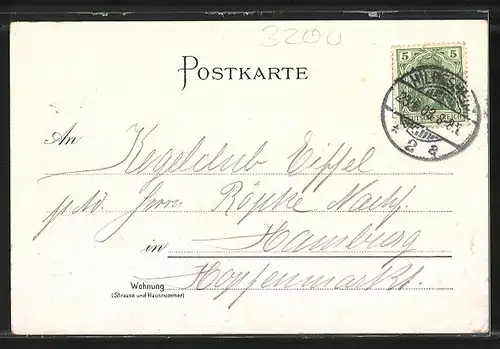 3200
POSTKARTE
5 5
DEUTSCHES REICH
HILDESHEIM
2 a
An Kegelclub Eiffel
Herrn Röpke Nachf.
in Hamburg
Hopfenmarkt.
Wohnung
(Strasse und Hausnummer)